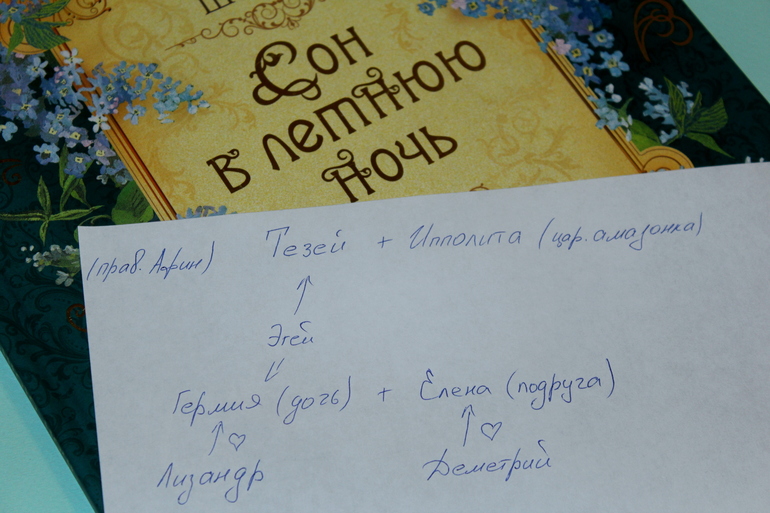 Сон
в летнюю
ночь
(прав. Афин) Тезей + Ипполита (цар. амазонка)
Эгей
Гермия (дочь) + Елена (подруга)
Лизандр Деметрий